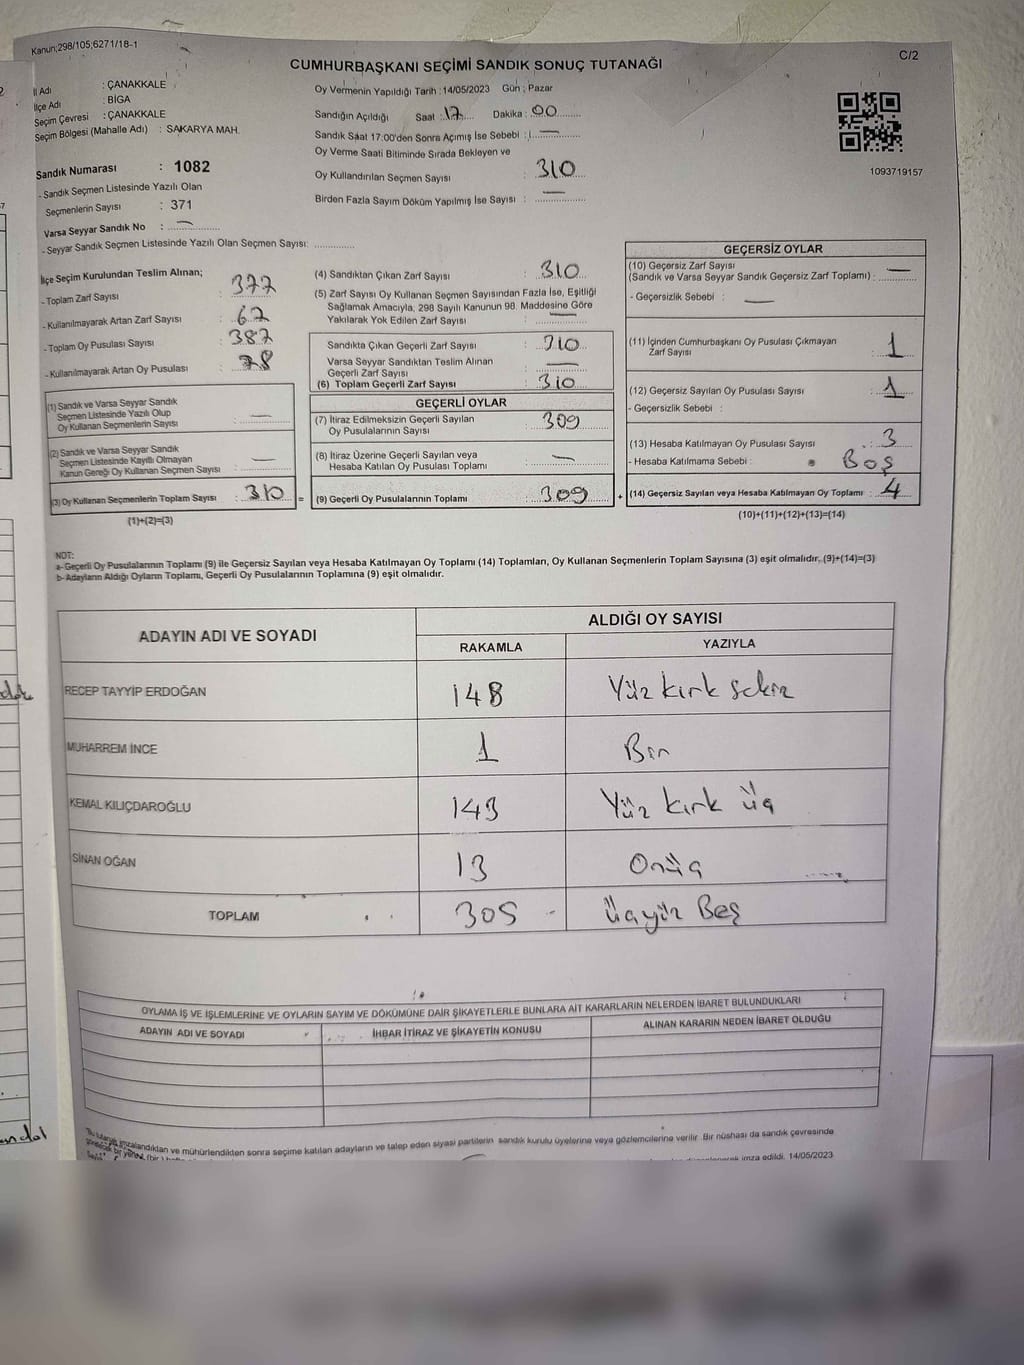 Kanun;298/105;6271/18-1
C/2
CUMHURBAŞKANI SEÇİMİ SANDIK SONUÇ TUTANAĞI
İl Adı : ÇANAKKALE
İlçe Adı : BİGA
Seçim Çevresi : ÇANAKKALE
Seçim Bölgesi (Mahalle Adı) : SAKARYA MAH.
Oy Vermenin Yapıldığı Tarih : 14/05/2023 Gün : Pazar
Sandığın Açıldığı Saat : 17 Dakika : 00
Sandık Saat 17:00'den Sonra Açımış İse Sebebi : —
Oy Verme Saati Bitiminde Sırada Bekleyen ve
Oy Kullandırılan Seçmen Sayısı : 310
Birden Fazla Sayım Döküm Yapılmış İse Sayısı : —
1093719157
Sandık Numarası : 1082
- Sandık Seçmen Listesinde Yazılı Olan
Seçmenlerin Sayısı : 371
Varsa Seyyar Sandık No : —
- Seyyar Sandık Seçmen Listesinde Yazılı Olan Seçmen Sayısı:
İlçe Seçim Kurulundan Teslim Alınan;
- Toplam Zarf Sayısı : 377
- Kullanılmayarak Artan Zarf Sayısı : 67
- Toplam Oy Pusulası Sayısı : 387
- Kullanılmayarak Artan Oy Pusulası : 78
(1) Sandık ve Varsa Seyyar Sandık
Seçmen Listesinde Yazılı Olup
Oy Kullanan Seçmenlerin Sayısı : —
(2) Sandık ve Varsa Seyyar Sandık
Seçmen Listesinde Kayıtlı Olmayan
Kanun Gereği Oy Kullanan Seçmen Sayısı : —
(3) Oy Kullanan Seçmenlerin Toplam Sayısı : 310 =
(1)+(2)=(3)
(4) Sandıktan Çıkan Zarf Sayısı : 310
(5) Zarf Sayısı Oy Kullanan Seçmen Sayısından Fazla İse, Eşitliği
Sağlamak Amacıyla, 298 Sayılı Kanunun 98. Maddesine Göre
Yakılarak Yok Edilen Zarf Sayısı : —
Sandıkta Çıkan Geçerli Zarf Sayısı : 310
Varsa Seyyar Sandıktan Teslim Alınan
Geçerli Zarf Sayısı : —
(6) Toplam Geçerli Zarf Sayısı : 310
GEÇERLİ OYLAR
(7) İtiraz Edilmeksizin Geçerli Sayılan
Oy Pusulalarının Sayısı : 309
(8) İtiraz Üzerine Geçerli Sayılan veya
Hesaba Katılan Oy Pusulası Toplamı : —
(9) Geçerli Oy Pusulalarının Toplamı : 309 +
GEÇERSİZ OYLAR
(10) Geçersiz Zarf Sayısı
(Sandık ve Varsa Seyyar Sandık Geçersiz Zarf Toplamı) : —
- Geçersizlik Sebebi : —
(11) İçinden Cumhurbaşkanı Oy Pusulası Çıkmayan
Zarf Sayısı : 1
(12) Geçersiz Sayılan Oy Pusulası Sayısı : 1
- Geçersizlik Sebebi :
(13) Hesaba Katılmayan Oy Pusulası Sayısı : 3
- Hesaba Katılmama Sebebi : Boş
(14) Geçersiz Sayılan veya Hesaba Katılmayan Oy Toplamı : 4
(10)+(11)+(12)+(13)=(14)
NOT:
a- Geçerli Oy Pusulalarının Toplamı (9) ile Geçersiz Sayılan veya Hesaba Katılmayan Oy Toplamı (14) Toplamları, Oy Kullanan Seçmenlerin Toplam Sayısına (3) eşit olmalıdır. (9)+(14)=(3)
b- Adayların Aldığı Oyların Toplamı, Geçerli Oy Pusulalarının Toplamına (9) eşit olmalıdır.
ADAYIN ADI VE SOYADI
ALDIĞI OY SAYISI
RAKAMLA YAZIYLA
RECEP TAYYİP ERDOĞAN 148 Yüz kırk sekiz
MUHARREM İNCE 1 Bir
KEMAL KILIÇDAROĞLU 143 Yüz kırk üç
SİNAN OĞAN 13 Onüç
TOPLAM 305 Üçyüz Beş
OYLAMA İŞ VE İŞLEMLERİNE VE OYLARIN SAYIM VE DÖKÜMÜNE DAİR ŞİKAYETLERLE BUNLARA AİT KARARLARIN NELERDEN İBARET BULUNDUKLARI
ADAYIN ADI VE SOYADI İHBAR İTİRAZ VE ŞİKAYETİN KONUSU ALINAN KARARIN NEDEN İBARET OLDUĞU
Bu tutanak imzalandıktan ve mühürlendikten sonra seçime katılan adayların ve talep eden siyasi partilerin sandık kurulu üyelerine veya gözlemcilerine verilir. Bir nüshası da sandık çevresinde
imza edildi. 14/05/2023